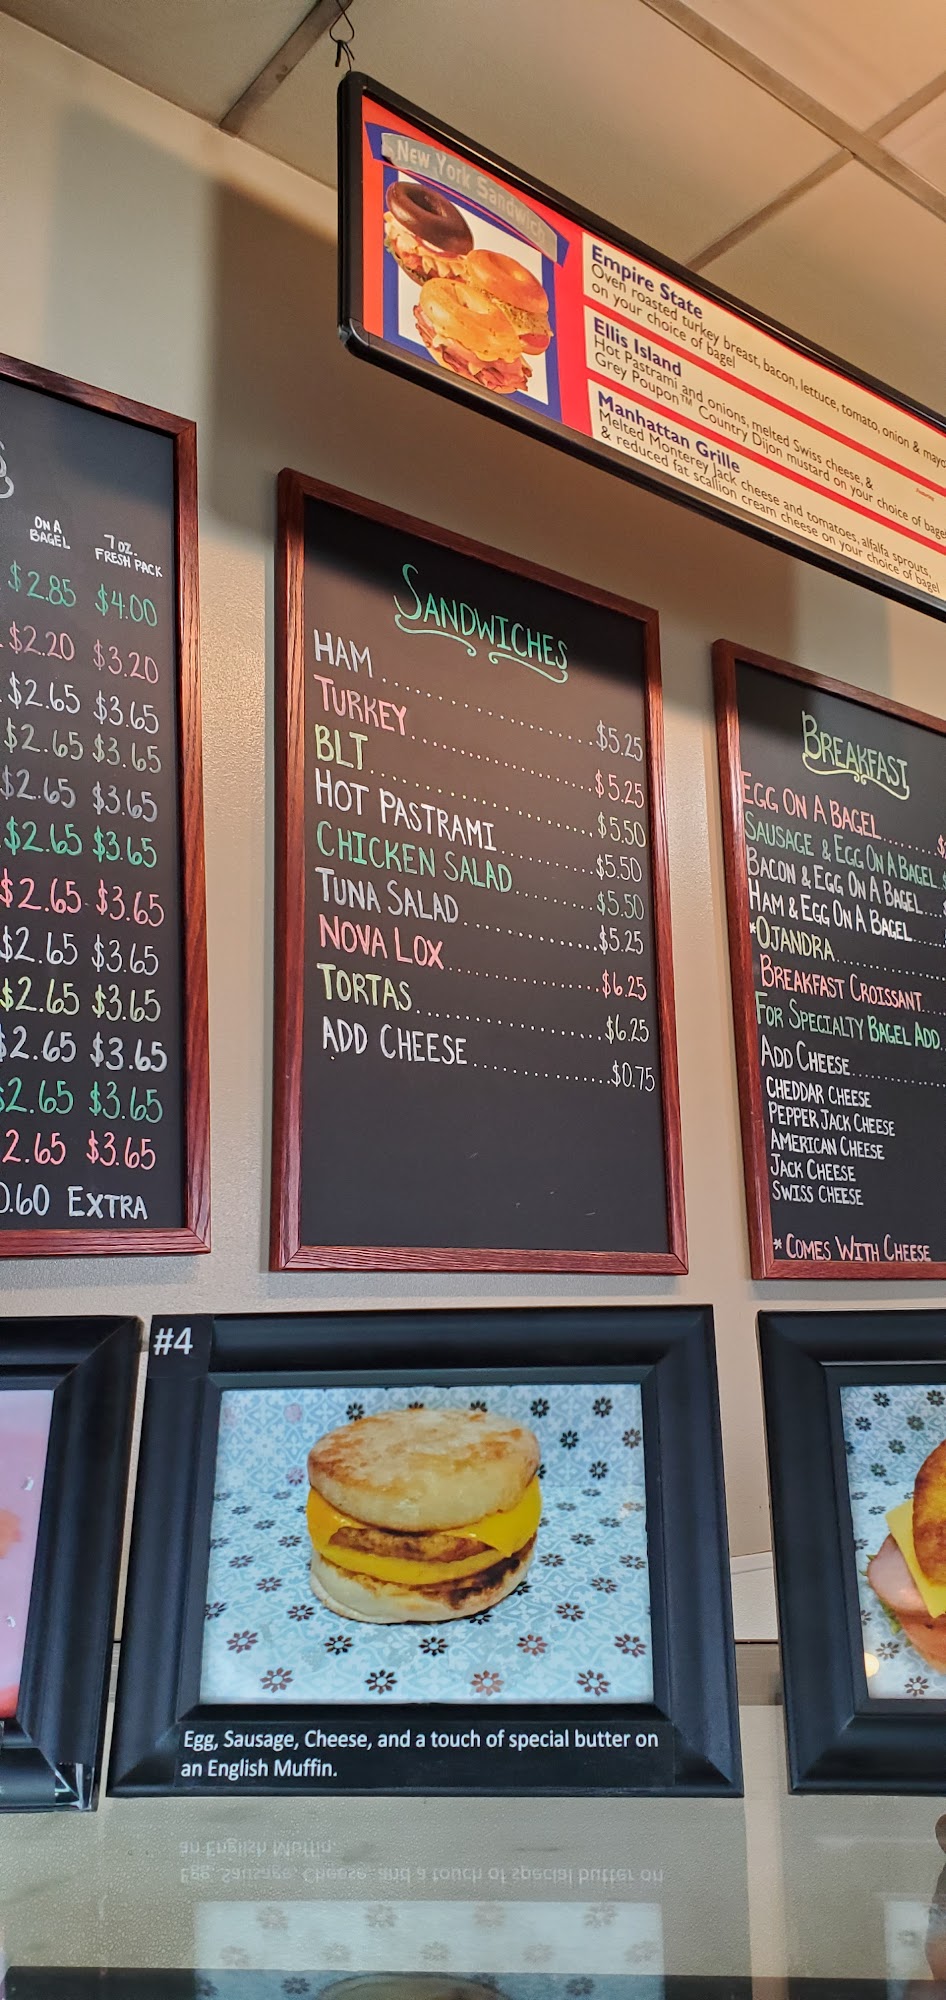 New York Sandwich
Empire State
Oven roasted turkey breast, bacon, lettuce, tomato, onion & mayo
on your choice of bagel
Ellis Island
Hot Pastrami and onions, melted Swiss cheese, &
Grey Poupon™ Country Dijon mustard on your choice of bagel
Manhattan Grille
Melted Monterey Jack cheese and tomatoes, alfalfa sprouts,
& reduced fat scallion cream cheese on your choice of bagel
ON A
BAGEL
7 OZ.
FRESH PACK
$2.85 $4.00
$2.20 $3.20
$2.65 $3.65
$2.65 $3.65
$2.65 $3.65
$2.65 $3.65
$2.65 $3.65
$2.65 $3.65
$2.65 $3.65
$2.65 $3.65
$2.65 $3.65
2.65 $3.65
0.60 EXTRA
SANDWICHES
HAM $5.25
TURKEY $5.25
BLT $5.50
HOT PASTRAMI $5.50
CHICKEN SALAD $5.50
TUNA SALAD $5.25
NOVA LOX $6.25
TORTAS $6.25
ADD CHEESE $0.75
BREAKFAST
EGG ON A BAGEL $
SAUSAGE & EGG ON A BAGEL
BACON & EGG ON A BAGEL
HAM & EGG ON A BAGEL
*OJANDRA
BREAKFAST CROISSANT
FOR SPECIALTY BAGEL ADD
ADD CHEESE
CHEDDAR CHEESE
PEPPER JACK CHEESE
AMERICAN CHEESE
JACK CHEESE
SWISS CHEESE
* COMES WITH CHEESE
#4
Egg, Sausage, Cheese, and a touch of special butter on
an English Muffin.